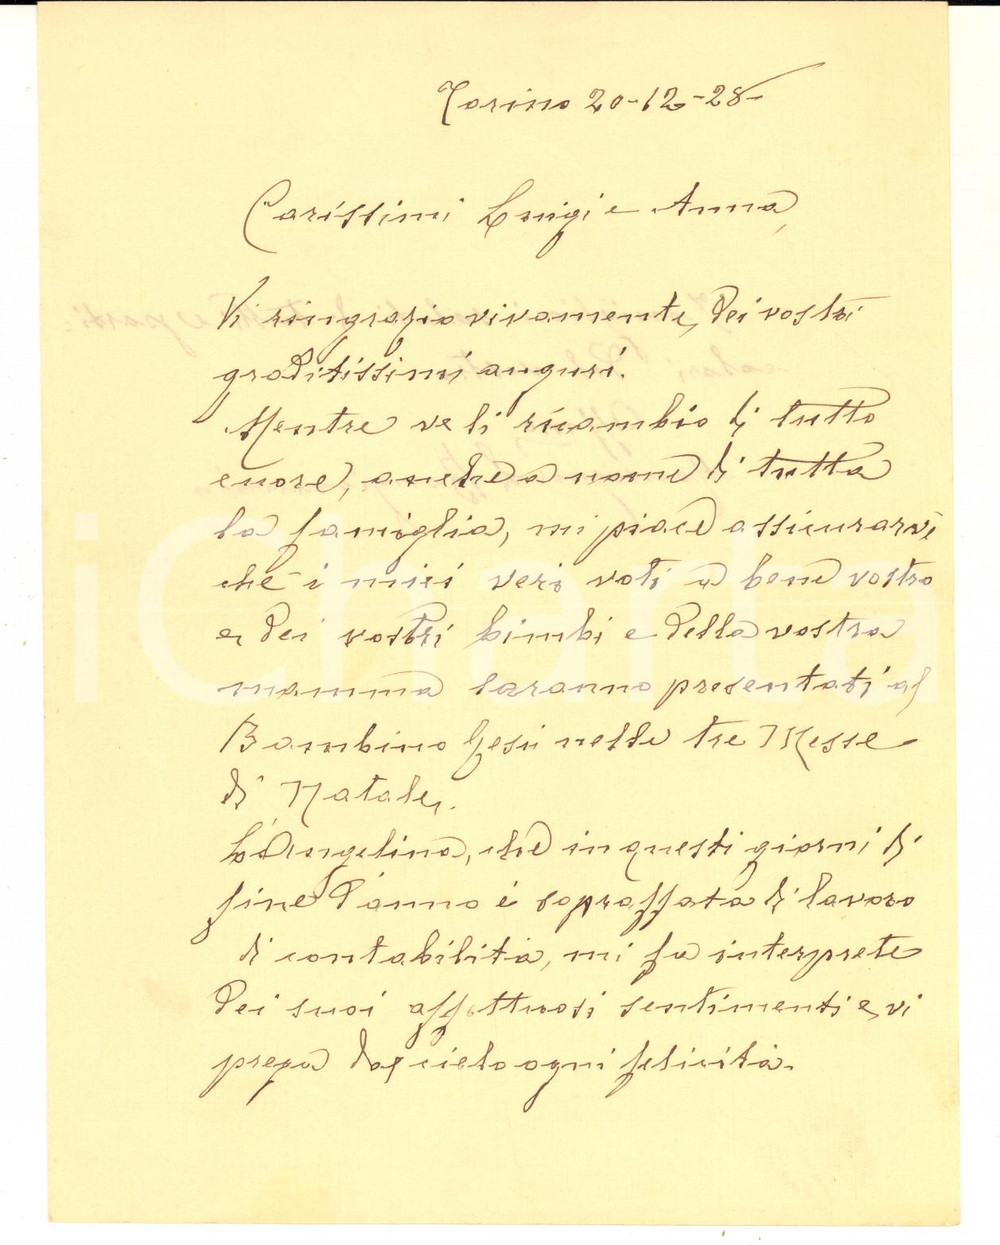 Torino 20-12-28-
Carissimi Luigi e Anna,
Vi ringrazio vivamente, dei vostri
graditissimi auguri.
Mentre ve li ricambio di tutto
cuore, anche a nome di tutta
la famiglia, mi piace assicurarvi
che i miei veri voti a bene vostro
e dei vostri bimbi e della vostra
mamma saranno presentati al
Bambino Gesù nelle tre Messe
di Natale.
L'Angelina, che in questi giorni di
fine d'anno è sopraffatta di lavoro
di contabilità, mi fa interprete
dei suoi affettuosi sentimenti e vi
prega dal cielo ogni felicità.
iCharta